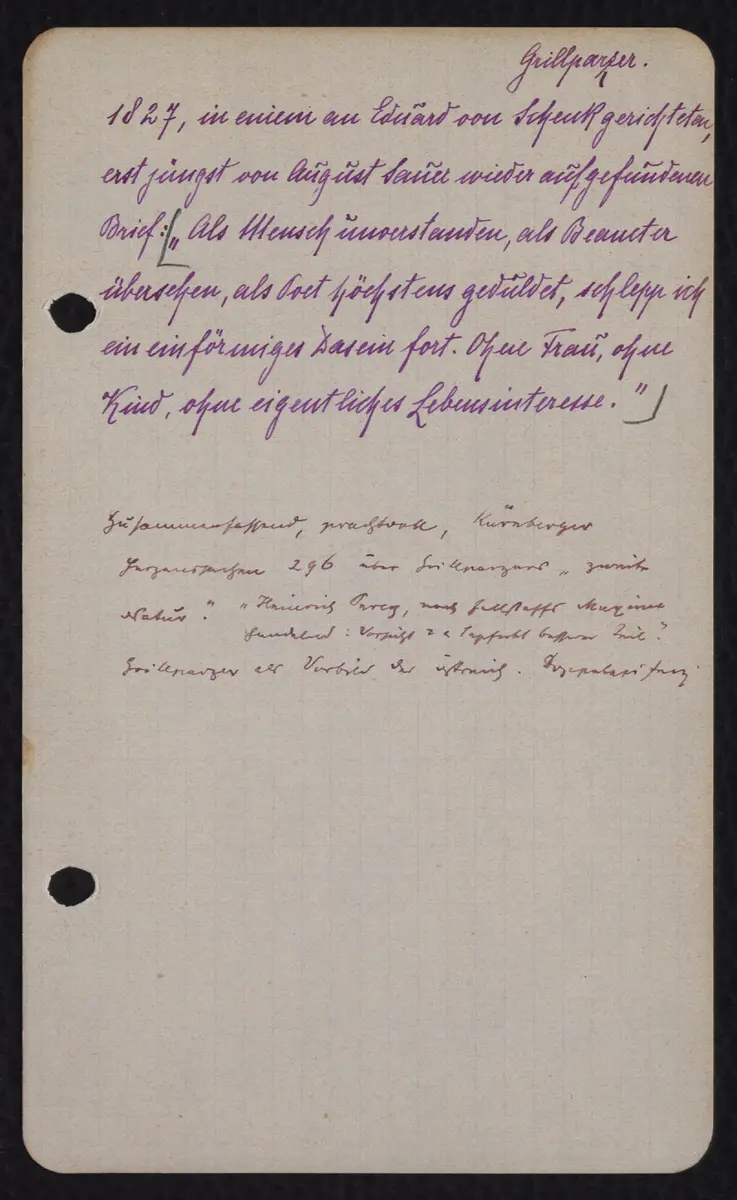 Grillparzer.
1827, in einem an Eduard von Schenk gerichteten,
erst jüngst von August Sauer wieder aufgefundenen
Brief: [„Als Mensch unverstanden, als Beamter
übersehen, als Poet höchstens geduldet, schlepp ich
ein einförmiges Dasein fort. Ohne Frau, ohne
Kind, ohne eigentliches Lebensinteresse."]
Zusammenfassend, prachtvoll, Kürnberger
Herzenssachen 296 über Grillparzers „zweite
Natur". "Heinrich Percy, nach Fallstaffs Maxime
handelnd: Vorsicht Tapferkt bessrer Teil".
Grillparzer als Vorbild der östreich.